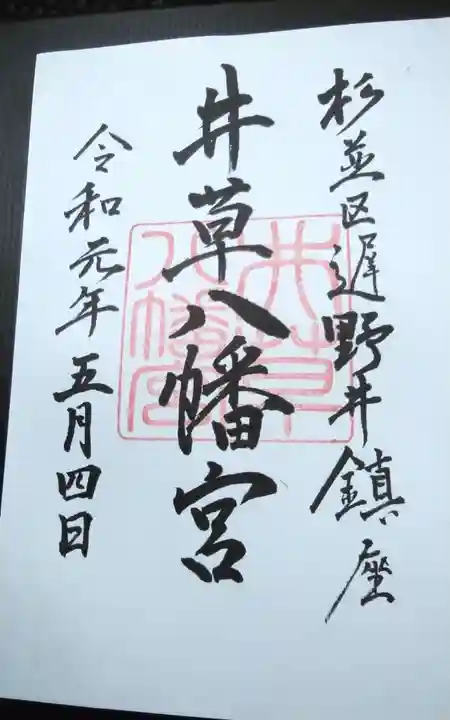 杉並区遅野井鎮座
井草八幡宮
令和元年五月四日
井草
八幡宮